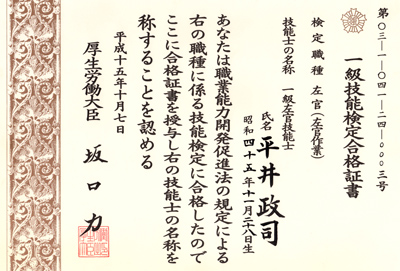 第〇三―一―〇四一―二四―〇〇〇三号
一級技能検定合格証書
検定職種 左官(左官作業)
技能士の名称 一級左官技能士
氏名 平井政司
昭和四十五年十一月二八日生
あなたは職業能力開発促進法の規定による
右の職種に係る技能検定に合格したので
ここに合格証書を授与し右の技能士の名称を
称することを認める
平成十五年十月七日
厚生労働大臣 坂口力